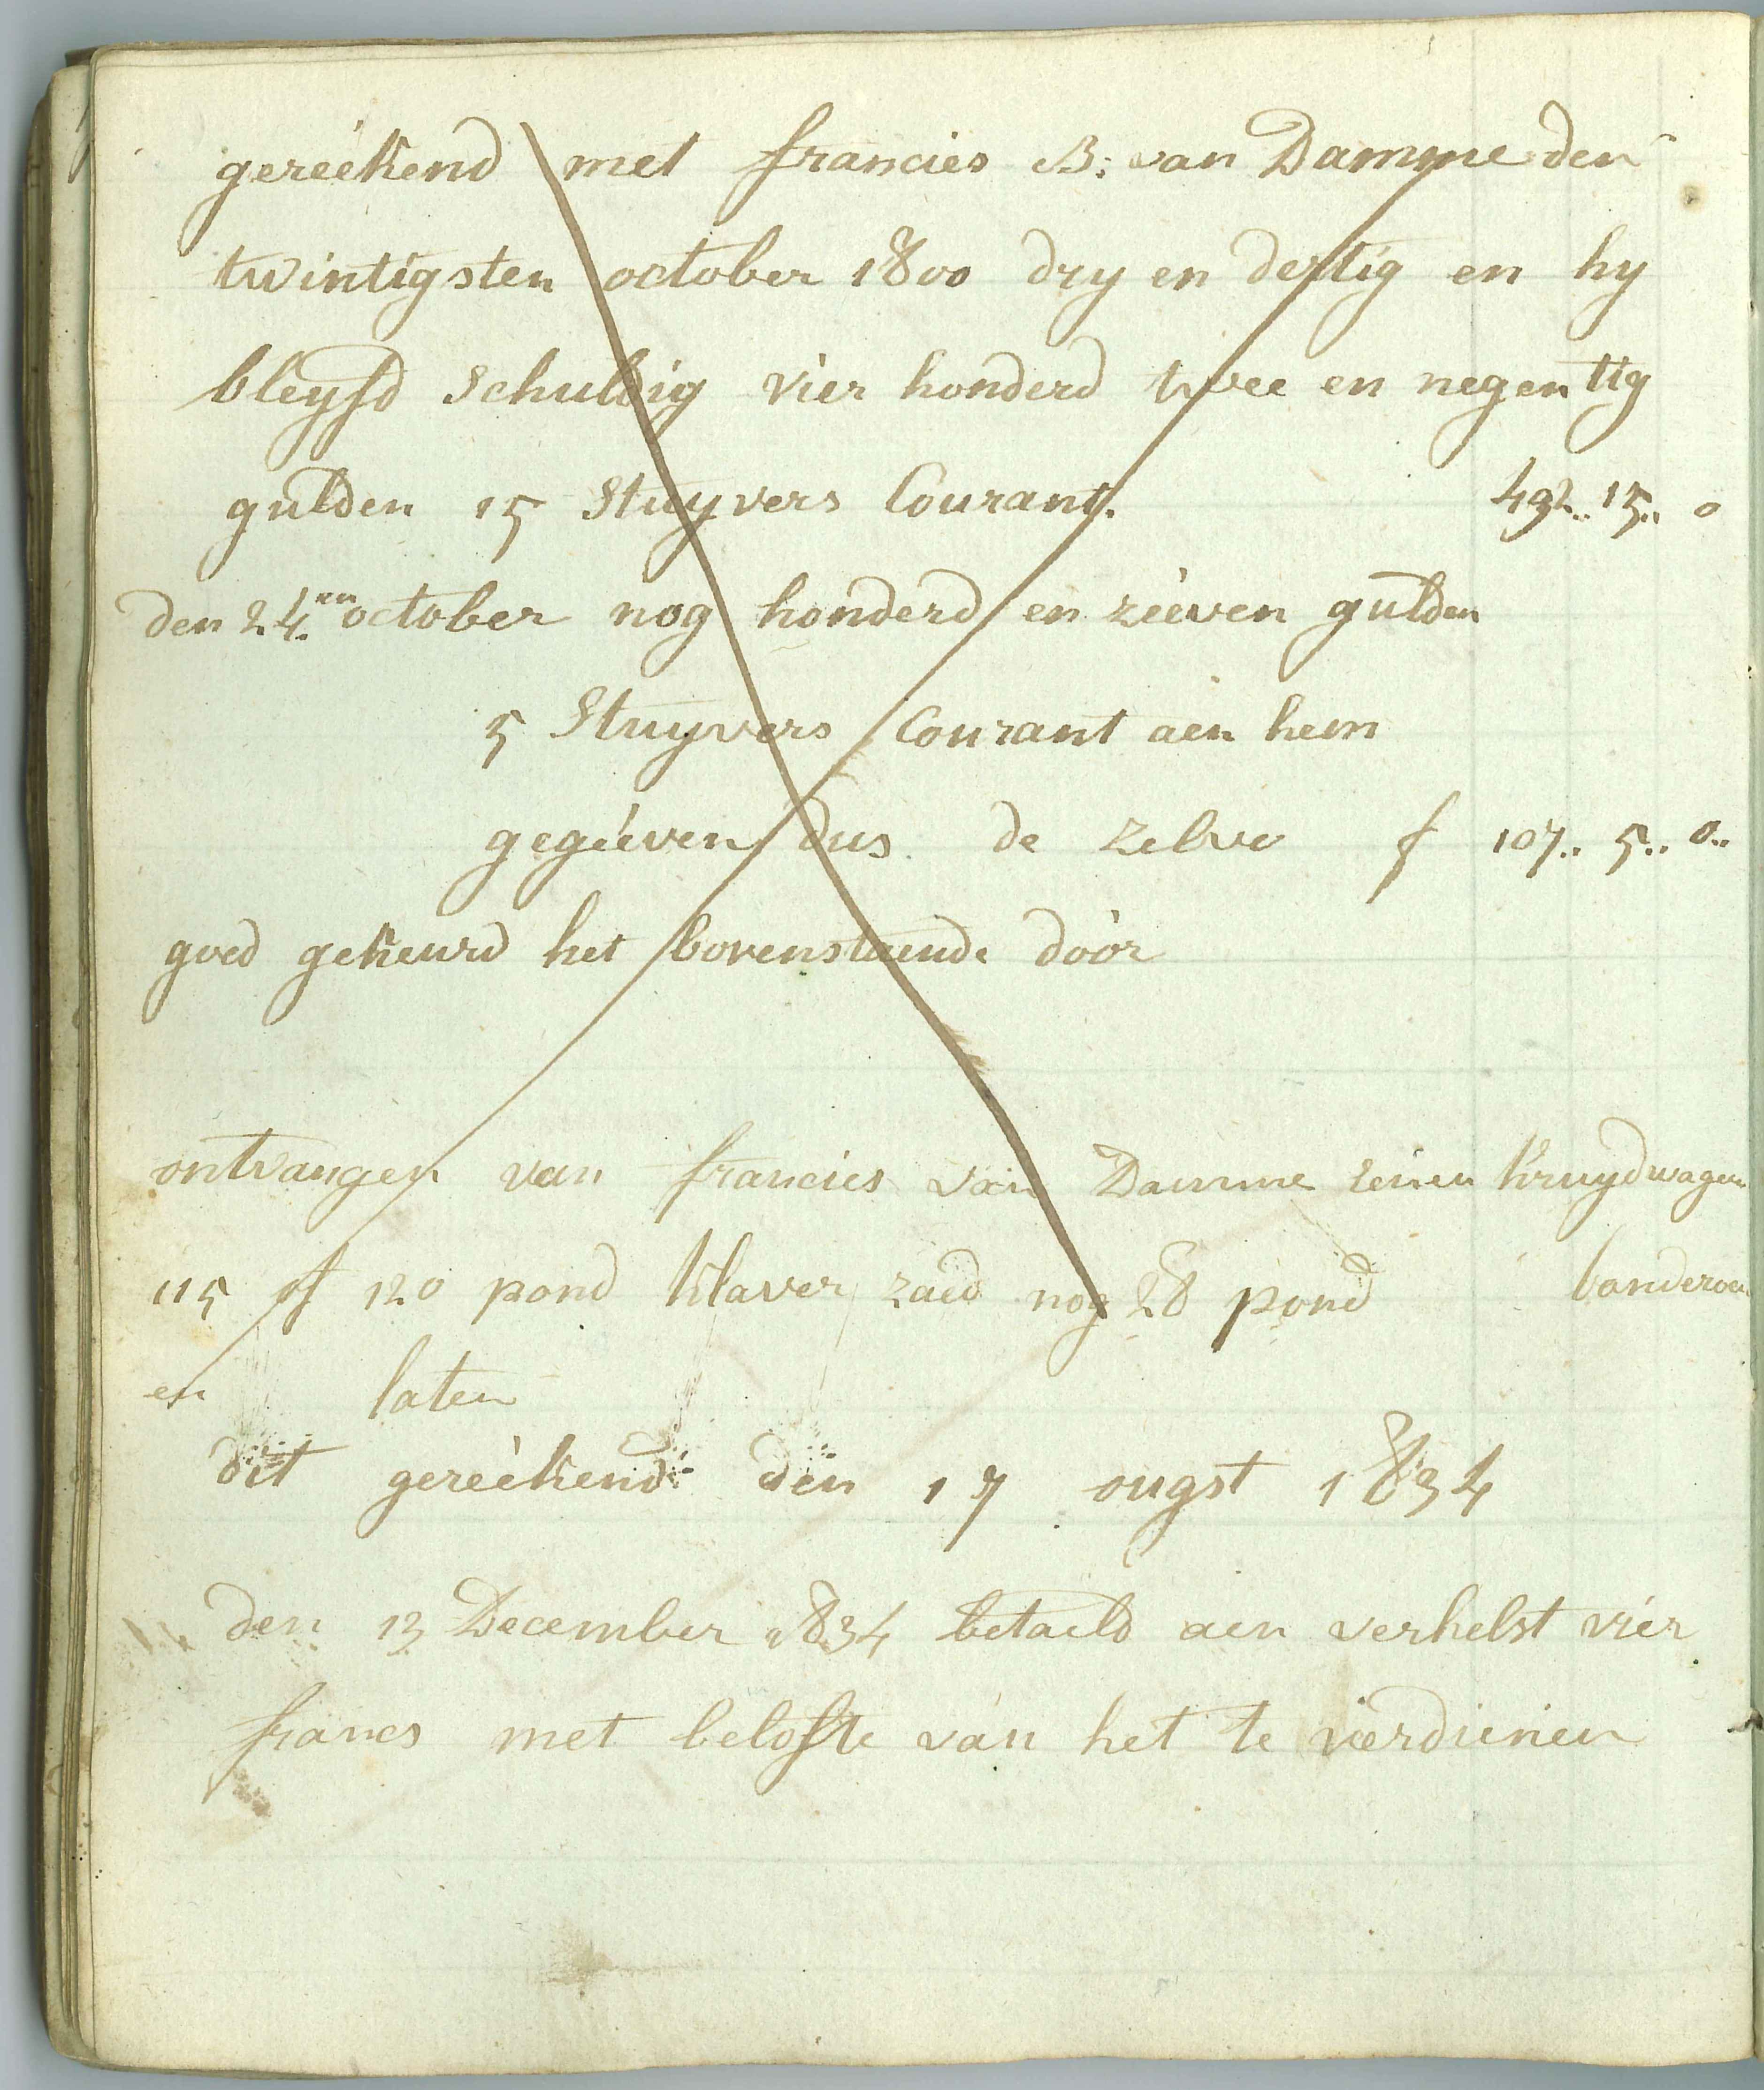 gereékend met francies B: van Damme den
twintigsten october 1800 dry en dertig en hy
bleyfd schuldig vier honderd twee en negentig
gulden 15 Stuyvers Courant. 492.. 15.. 0
den 24.en october nog honderd en zeéven gulden
5 Stuyvers Courant aen hem
gegeéven dus de zelve f 107.. 5.. 0..
goed gekeurd het bovenstaende door
ontvangen van francies van Damme eenen kruydwagen
115 of 120 pond klaver zaed nog 28 pond
en laten
dit gereékend den 17 ougst 1834
den 13 December 1834 betaeld aen verhelst vier
francs met belofte van het te verdienen